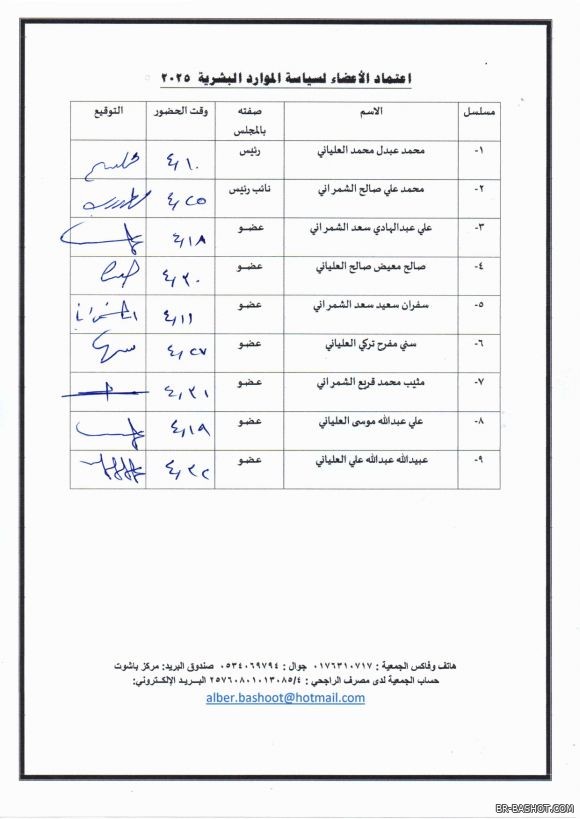 اعتماد الأعضاء لسياسة الموارد البشرية ٢٠٢٥
مسلسل الاسم صفته بالمجلس وقت الحضور التوقيع
١- محمد عبدل محمد العلياني رئيس ٤,١٠
٢- محمد علي صالح الشمراني نائب رئيس ٤,٢٥
٣- علي عبدالهادي سعد الشمراني عضو ٤,١٨
٤- صالح معيض صالح العلياني عضو ٤,٢٠
٥- سفران سعيد سعد الشمراني عضو ٤,١١
٦- سني مفرح تركي العلياني عضو ٤,٢٧
٧- مثيب محمد قريع الشمراني عضو ٤,٢١
٨- علي عبدالله موسى العلياني عضو ٤,١٩
٩- عبيدالله عبدالله علي العلياني عضو ٤,٢٢
هاتف وفاكس الجمعية : ٠١٧٦٣١٠٧١٧ جوال : ٠٥٣٤٠٦٩٧٩٤ صندوق البريد: مركز باشوت
حساب الجمعية لدى مصرف الراجحي : ٢٥٧٦٠٨٠١٠١٣٠٨٥/٤ البـريـد الإلكـتروني:
alber.bashoot@hotmail.com
BR-BASHOT.COM